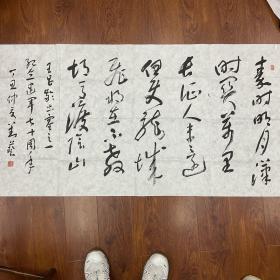 秦时明月汉
时关万里
长征人未还
但使龙城
飞将在不教
胡马渡阴山
王昌龄出塞之一
纪念建军七十周年
丁丑仲夏